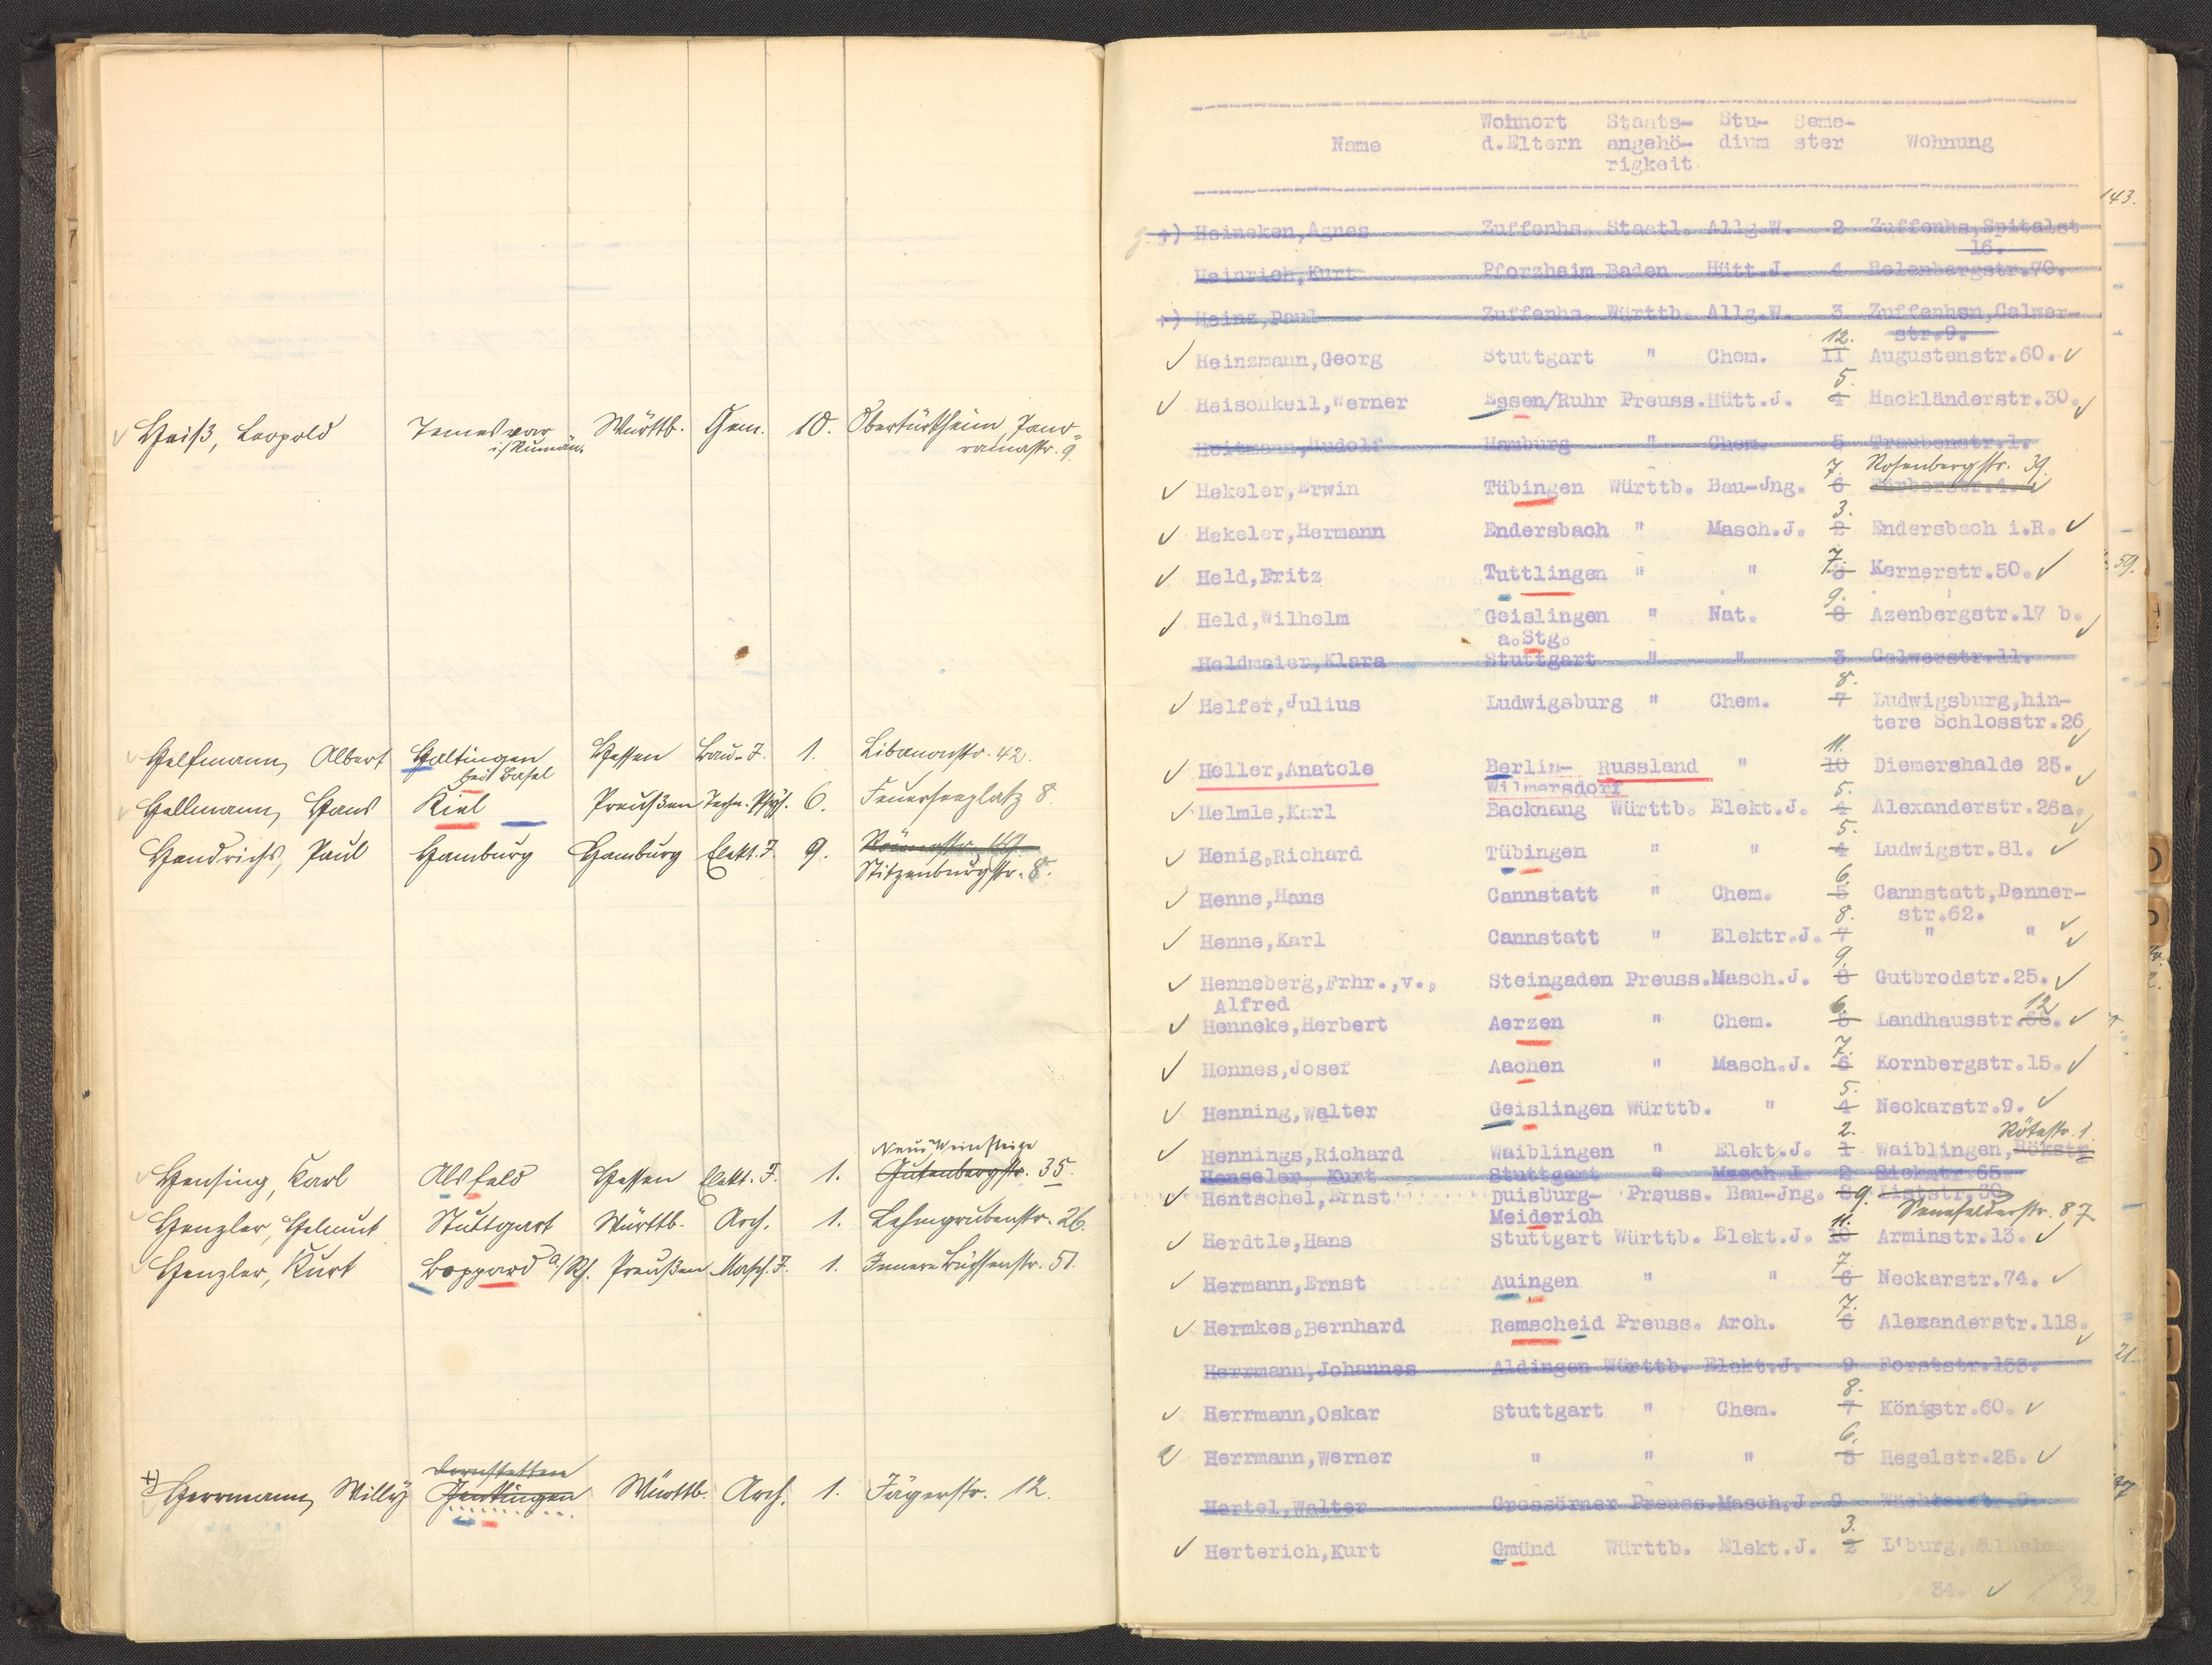 Heiß, Leopold Temesvar Württb. Chem. 10. Obertürkheim, Pano-
i/Rumän. ramastr. 9.
Helfmann, Albert Haltingen Hessen Bau-J. 1. Libanonstr. 42.
bei Basel
Hellmann, Hans Kiel Preußen Techn. Phys. 6. Feuerseeplatz 8.
Hendrichs, Paul Hamburg Hamburg Elekt. J. 9.
Stitzenburgstr. 8.
Neue Weinsteige
Hensing, Karl Alsfeld Hessen Elekt. J. 1. Gutenbergstr. 35.
Henzler, Helmut Stuttgart Württb. Arch. 1. Lehmgrubenstr. 26.
Henzler, Kurt Boppard a/Rh. Preußen Masch. J. 1. Innere 51.
Dornstetten
+) Herrmann, Willy Württb. Arch. 1. Jägerstr. 12.
-41-
Wohnort Staats- Stu- Seme-
Name d.Eltern angehö- dium ster Wohnung
rigkeit
143.
+) Heineken,Agnes Zuffenhs. Staatl. Allg.W. 2 Zuffenhs,Spitalst
16.
Heinrich,Kurt Pforzheim Baden Hütt.J. 4 Relenbergstr.70.
+) Heinz,Paul Zuffenhs. Württb. Allg.W. 3 Zuffenhsn,Calwer-
12. str.9.
✓ Heinzmann,Georg Stuttgart " Chem. 11 Augustenstr.60. ✓
5.
✓ Heischkeil,Werner Essen/Ruhr Preuss.Hütt.J. 4 Hackländerstr.30. ✓
Heitmann,Rudolf Hamburg " Chem. 5 Traubenstr.1.
7. Rosenbergstr. 39.
✓ Hekeler,Erwin Tübingen Württb. Bau-Jng. 6 Färberstr.4. ✓
3.
✓ Hekeler,Hermann Endersbach " Masch.J. 2 Endersbach i.R. ✓
7.
✓ Held,Fritz Tuttlingen " " 6 Kernerstr.50. ✓
59.
9.
✓ Held,Wilhelm Geislingen " Nat. 8 Azenbergstr.17 b. ✓
a.Stg.
Heldmaier,Klara Stuttgart " " 3 Calwerstr.11.
8.
✓ Helfer,Julius Ludwigsburg " Chem. 7 Ludwigsburg,hin-
tere Schlosstr.26 ✓
11.
✓ Heller,Anatole Berlin- Russland " 10 Diemershalde 25. ✓
Wilmersdorf 5.
✓ Helmle,Karl Backnang Württb. Elekt.J. 4 Alexanderstr.26a. ✓
5.
✓ Henig,Richard Tübingen " " 4 Ludwigstr.81. ✓
6.
✓ Henne,Hans Cannstatt " Chem. 5 Cannstatt,Denner-
8. str.62. ✓
✓ Henne,Karl Cannstatt " Elektr.J. 7 " " ✓
9.
✓ Henneberg,Frhr.,v., Steingaden Preuss.Masch.J. 8 Gutbrodstr.25. ✓
Alfred 6. 12
✓ Henneke,Herbert Aerzen " Chem. 5 Landhausstr. ✓
7.
✓ Hennes,Josef Aachen " Masch.J. 6 Kornbergstr.15. ✓
5.
✓ Henning,Walter Geislingen Württb. " 4 Neckarstr.9. ✓
2. Rötestr. 1.
✓ Hennings,Richard Waiblingen " Elekt.J. 1 Waiblingen,
Henseler, Kurt Stuttgart " Masch.J. 2 Sickstr.65.
✓ Hentschel,Ernst Duisburg- Preuss. Bau-Jng. 8 9. Liststr.30
Meiderich 11. Senefelderstr. 87
✓ Herdtle,Hans Stuttgart Württb. Elekt.J. 10 Arminstr.13. ✓
7.
✓ Hermann,Ernst Auingen " " 6 Neckarstr.74. ✓
7.
✓ Hermkes,Bernhard Remscheid Preuss. Arch. 6 Alexanderstr.118. ✓
Herrmann,Johannes Aldingen Württb. Elekt.J. 9 Forststr.153.
21.
8.
✓ Herrmann,Oskar Stuttgart " Chem. 7 Königstr.60. ✓
6.
✓ Herrmann,Werner " " " 5 Hegelstr.25. ✓
Hertel,Walter Grossörner Preuss.Masch.J. 9 Wächterstr.9.
3.
✓ Herterich,Kurt Gmünd Württb. Elekt.J. 2 L'burg,
34. ✓